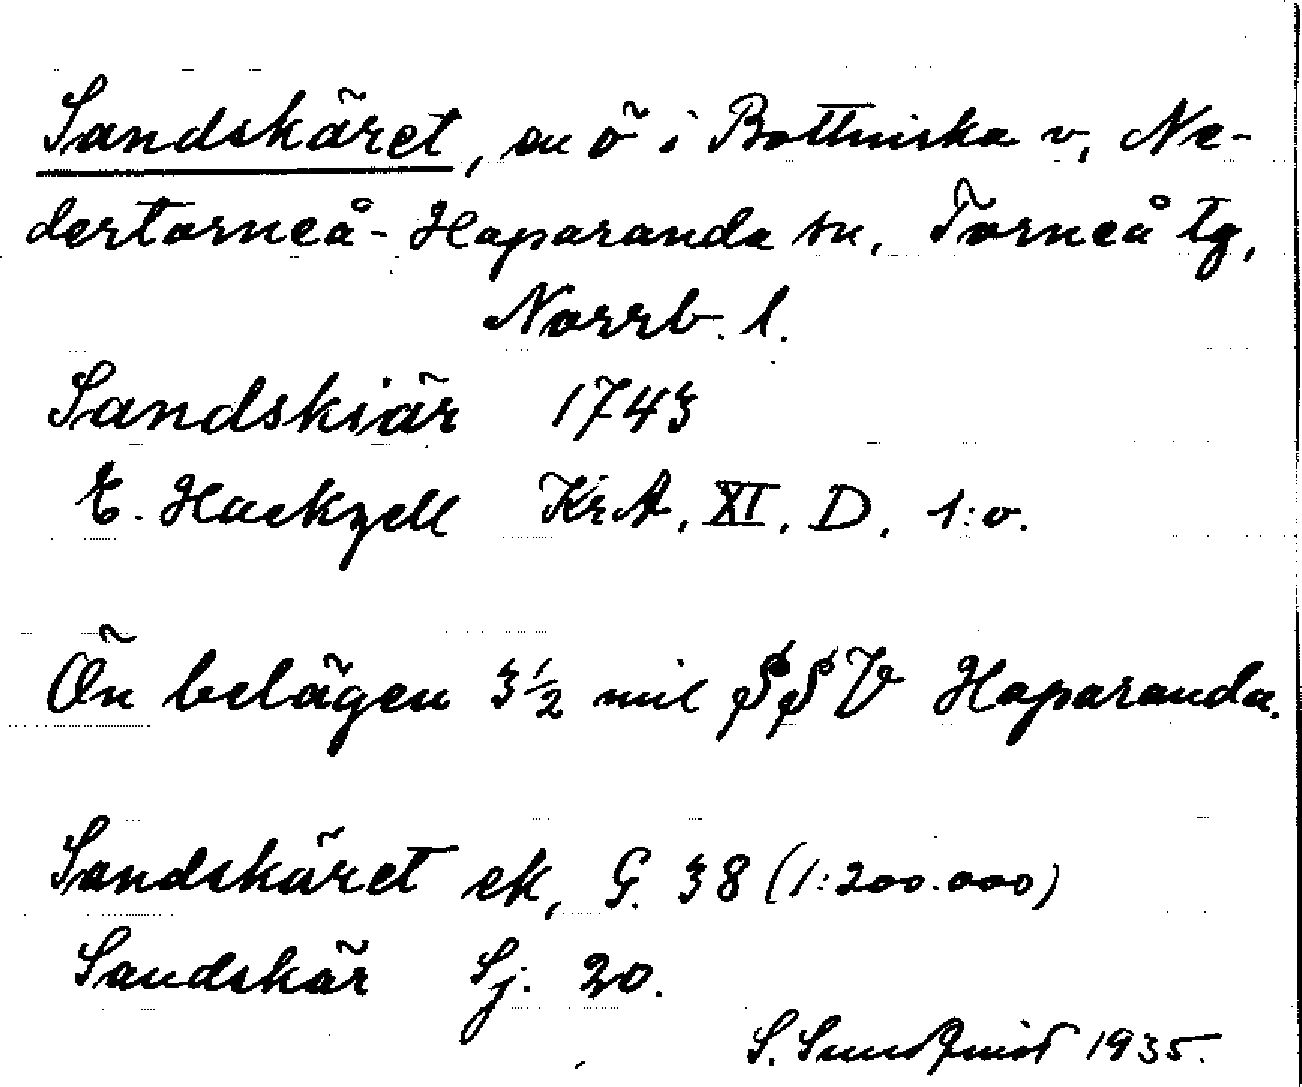 Sandskäret, en ö i Bottniska v, Ne-
dertorneå-Haparanda sn, Torneå tg,
Norrb. l.
Sandskiär 1743
E. Hackzell KrA, XI, D, 1:o.
Ön belägen 3 1/2 mil SSV Haparanda.
Sandskäret ek, G. 38 (1:200.000)
Sandskär Sj. 20.
S. Sundqvist 1935.